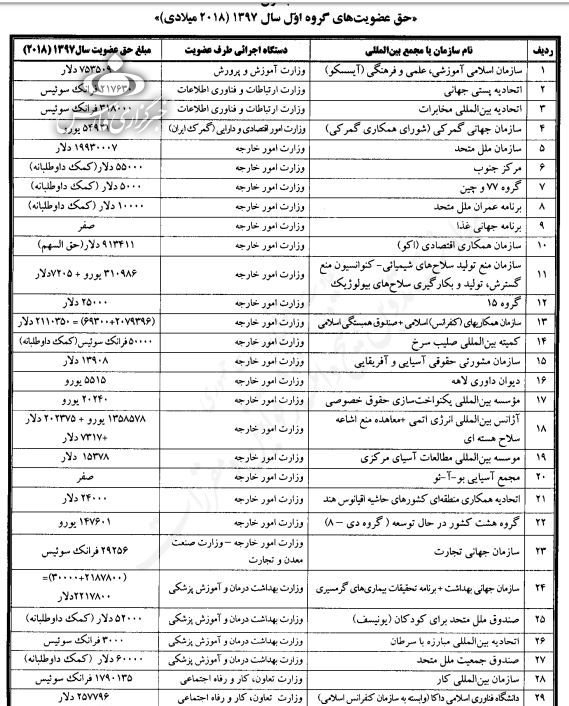 «حق عضویت‌های گروه اوّل سال ۱۳۹۷ (۲۰۱۸ میلادی)»
ردیف نام سازمان یا مجمع بین‌المللی دستگاه اجرائی طرف عضویت مبلغ حق عضویت سال۱۳۹۷ (۲۰۱۸)
۱ سازمان اسلامی آموزشی، علمی و فرهنگی (آیسسکو) وزارت آموزش و پرورش ۷۵۳۵۰۹ دلار
۲ اتحادیه پستی جهانی وزارت ارتباطات و فناوری اطلاعات ۲۱۷۶۳۰ فرانک سوئیس
۳ اتحادیه بین‌المللی مخابرات وزارت ارتباطات و فناوری اطلاعات ۳۱۸۰۰۰ فرانک سوئیس
۴ سازمان جهانی گمرکی (شورای همکاری گمرکی) وزارت امور اقتصادی و دارایی (گمرک ایران) ۵۴۹۳۱ یورو
۵ سازمان ملل متحد وزارت امور خارجه ۱۹۹۳۰۰۰۷ دلار
۶ مرکز جنوب وزارت امور خارجه ۵۵۰۰۰ دلار (کمک داوطلبانه)
۷ گروه ۷۷ و چین وزارت امور خارجه ۵۰۰۰ دلار (کمک داوطلبانه)
۸ برنامه عمران ملل متحد وزارت امور خارجه ۱۰۰۰۰ دلار (کمک داوطلبانه)
۹ برنامه جهانی غذا وزارت امور خارجه صفر
۱۰ سازمان همکاری اقتصادی (اکو) وزارت امور خارجه ۹۱۳۴۱۱ دلار(حق السهم)
۱۱ سازمان منع تولید سلاح‌های شیمیائی- کنوانسیون منع
گسترش، تولید و بکارگیری سلاح‌های بیولوژیک وزارت امور خارجه ۳۱۰۹۸۶ یورو + ۷۲۰۵دلار
۱۲ گروه ۱۵ وزارت امور خارجه ۲۵۰۰۰ دلار
۱۳ سازمان همکاریهای (کنفرانس) اسلامی +صندوق همبستگی اسلامی وزارت امور خارجه (۲۰۷۹۳۹۶+۶۹۳۰۰) = ۲۱۱۰۳۵۰ دلار
۱۴ کمیته بین‌المللی صلیب سرخ وزارت امور خارجه ۵۰۰۰۰ فرانک سوئیس(کمک داوطلبانه)
۱۵ سازمان مشورتی حقوقی آسیایی و آفریقایی وزارت امور خارجه ۱۳۹۰۸ دلار
۱۶ دیوان داوری لاهه وزارت امور خارجه ۵۵۱۵ یورو
۱۷ مؤسسه بین‌المللی یکنواخت‌سازی حقوق خصوصی وزارت امور خارجه ۲۰۲۴۰ یورو
۱۸ آژانس بین‌المللی انرژی اتمی +معاهده منع اشاعه
سلاح هسته ای وزارت امور خارجه ۱۳۵۸۵۷۸ یورو + ۲۰۲۳۷۵ دلار
+۷۳۱۷ دلار
۱۹ موسسه بین‌المللی مطالعات آسیای مرکزی وزارت امور خارجه ۱۵۳۷۸ دلار
۲۰ مجمع آسیایی بو-آ-ئو وزارت امور خارجه صفر
۲۱ اتحادیه همکاری منطقه‌ای کشورهای حاشیه اقیانوس هند وزارت امور خارجه ۲۴۰۰۰ دلار
۲۲ گروه هشت کشور در حال توسعه ( گروه دی – ۸) وزارت امور خارجه ۱۴۷۶۰۱ یورو
۲۳ سازمان جهانی تجارت وزارت امور خارجه –وزارت صنعت
معدن و تجارت ۲۹۲۵۶ فرانک سوئیس
۲۴ سازمان جهانی بهداشت + برنامه تحقیقات بیماری‌های گرمسیری وزارت بهداشت درمان و آموزش پزشکی (۲۱۸۷۸۰۰+۳۰۰۰۰)=
۲۲۱۷۸۰۰دلار
۲۵ صندوق ملل متحد برای کودکان (یونیسف) وزارت بهداشت درمان و آموزش پزشکی ۵۲۰۰۰ دلار (کمک داوطلبانه)
۲۶ اتحادیه بین‌المللی مبارزه با سرطان وزارت بهداشت درمان و آموزش پزشکی ۳۰۰۰ فرانک سوئیس
۲۷ صندوق جمعیت ملل متحد وزارت بهداشت درمان و آموزش پزشکی ۶۰۰۰۰ دلار (کمک داوطلبانه)
۲۸ سازمان بین‌المللی کار وزارت تعاون، کار و رفاه اجتماعی ۱۷۹۰۱۳۵ فرانک سوئیس
۲۹ دانشگاه فناوری اسلامی داکا (وابسته به سازمان کنفرانس اسلامی) وزارت تعاون، کار و رفاه اجتماعی ۲۵۷۷۹۶ دلار